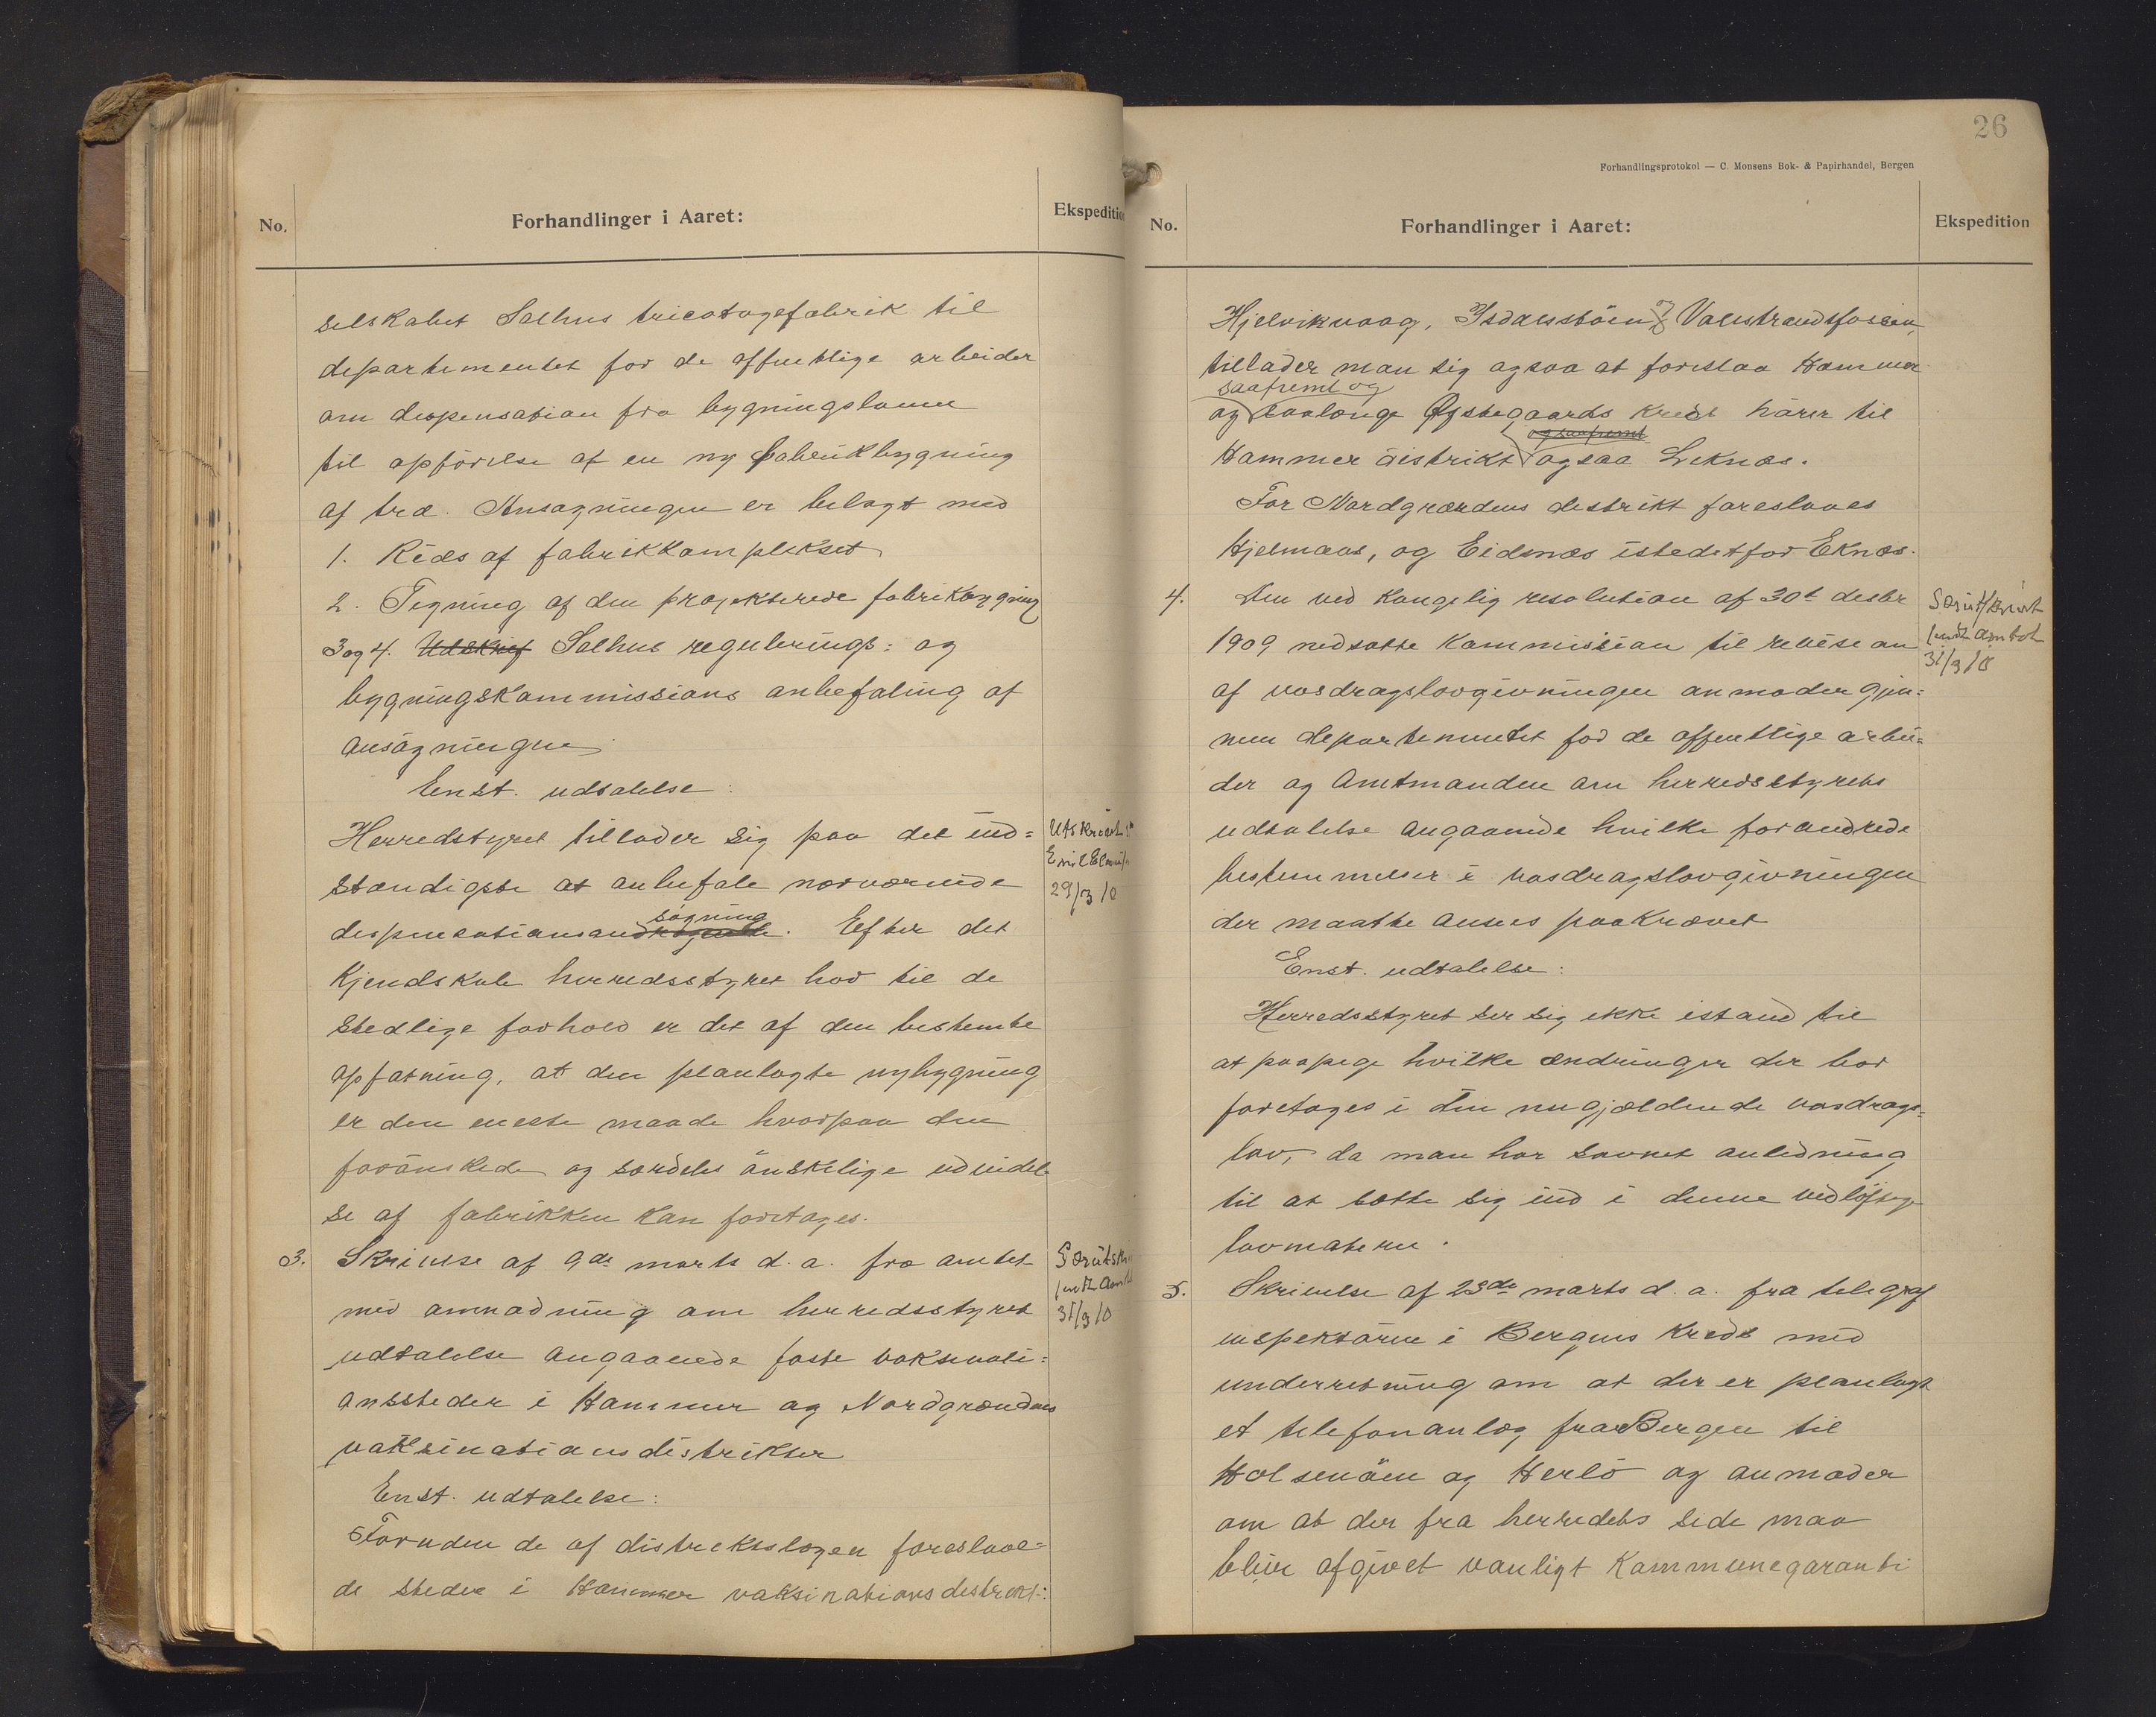 No.
Forhandlinger i Aaret:
Ekspedition
selskabet Salhus tricotagefabrik til
departementet for de offentlige arbeider
om dispensation fra bygningsloven
til opførelse af en ny fabrikbygning
af træ. Ansøgningen er bilagt med
1. Rids af fabrikkomplekset
2. Tegning af den projekterede fabrikbygning
3 og 4. Udskrif Salhus regulerings- og
bygningskommissions anbefaling af
ansøgningen
Enst. udtalelse:
Herredstyret tillader sig paa det ind=
stændigste at anbefale nærværende
søgning
dispensationsan. Efter det
kjendskab herredsstyret har til de
stedlige forhold er det af den bestemte
opfatning, at den planlagte nybygning
er den eneste maade hvorpaa den
forønskede og særdeles ønskelige udvidel
se af fabrikken kan foretages.
Utskrift
Emil
29/3 10
3. Skrivelse af 9de marts d. a. fra amtet
med anmodning om herredsstyret
udtalelse angaaende faste vaksinati=
onssteder i Hammer og Nordgrændens
vaksinationsdistrikter
Enst. udtalelse:
Foruden de af distriktslægen foreslaae=
de steder i Hammer vaksinationsdistrikt:
Særutskr
sendt Amt
31/3 10
26
Forhandlingsprotokol — C. Monsens Bok- & Papirhandel, Bergen
No.
Forhandlinger i Aaret:
Ekspedition
Hjelvikvaag, Isdalstøen og Valestrandsfossen,
tillader man sig ogsaa at foreslaa Hammer
saafremt og
og saalænge Øgstegaards kreds hører til
og saafremt
Hammer distrikt ogsaa Leknæs.
For Nordgrændens distrikt foreslaaes
Hjelmaas, og Eidsnæs istedetfor Eknæs.
4. Den ved kongelig resolution af 30t desbr
1909 nedsatte kommission til revision
af vasdragslovgivningen anmoder gjen=
nem departementet for de offentlige arbei=
der og Amtmanden om herredsstyrets
udtalelse angaaende hvilke forandrede
bestemmelser i vasdragslovgivningen
der maatte ansees paakrævet
Særutskrift
sendt amtet
31/3 10
Enst. udtalelse:
Herredsstyret ser sig ikke istand til
at paapege hvilke ændringer der bør
foretages i den nugjældende vasdrags=
lov, da man har savnet anledning
til at sætte sig ind i denne vidløftige
lovmaterie.
5. Skrivelse af 23de marts d. a. fra telegraf
inspektøren i Bergens kreds med
underretning om at der er planlagt
et telefonanlæg fra Bergen til
Holsenøen og Herlø og anmoder
om at der fra herredets side maa
blive afgivet vanligt kommunegaranti